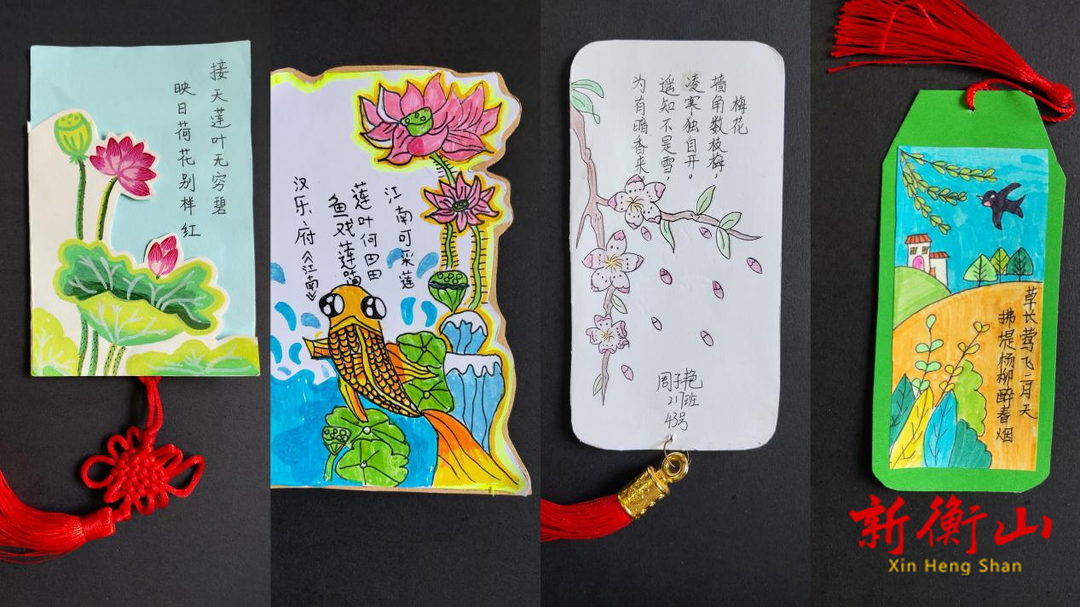 接天莲叶无穷碧
映日荷花别样红
江南可采莲
莲叶何田田
鱼戏莲
汉乐府《江南》
梅花
墙角数枝梅，
凌寒独自开。
遥知不是雪，
为有暗香来
周子艳
217班
43号
草长莺飞二月天
拂堤杨柳醉春烟
新衡山
Xin Heng Shan